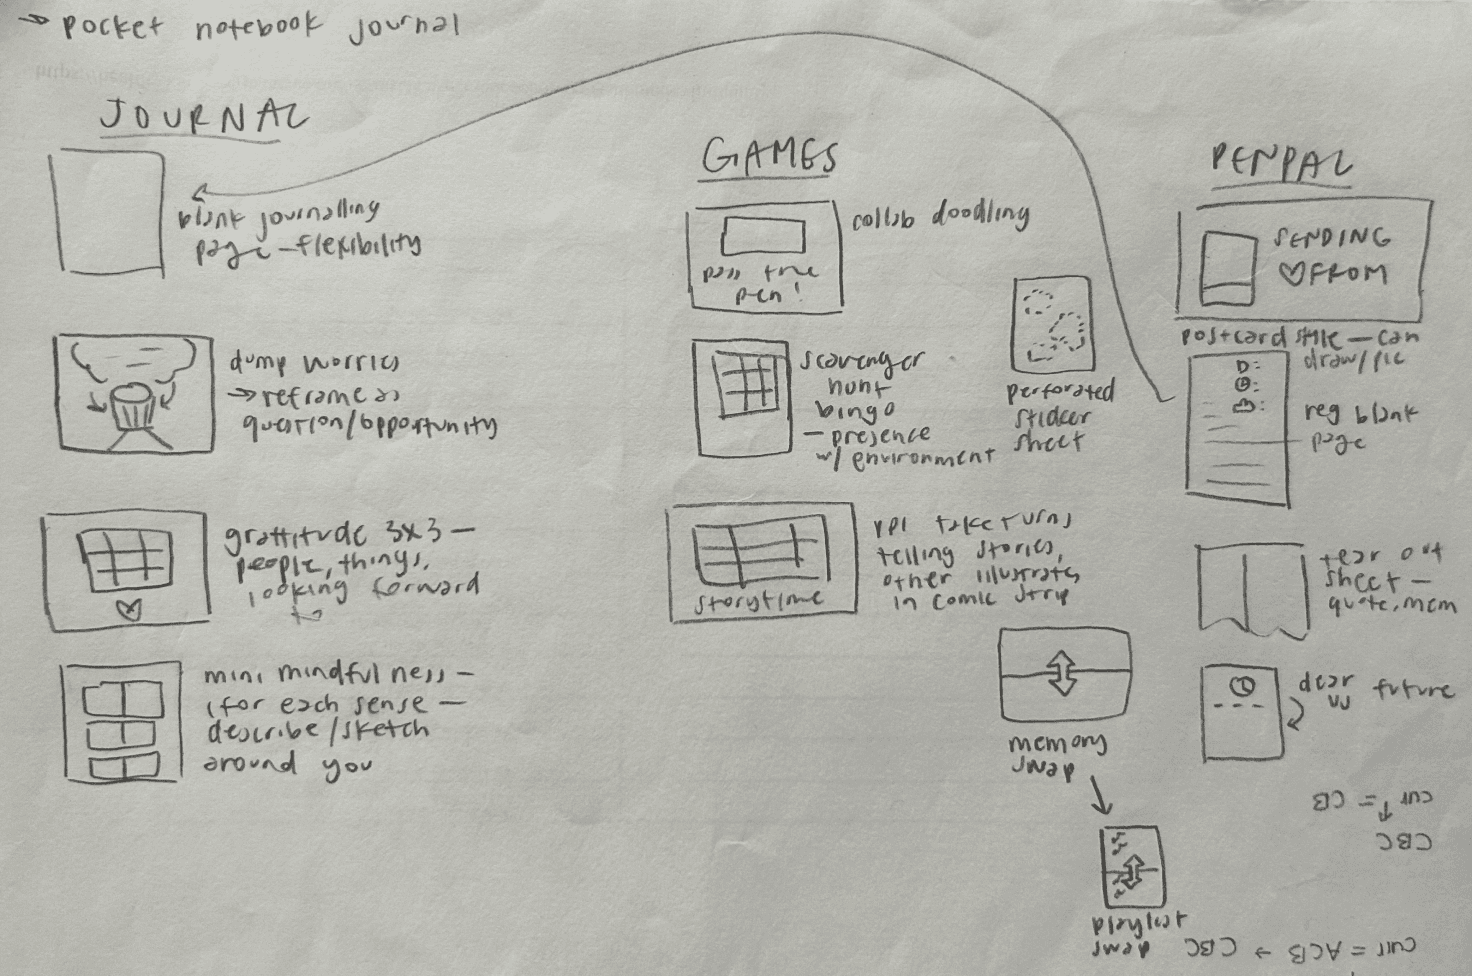 → pocket notebook journal
JOURNAL
blank journalling
page - flexibility
dump worries
→ reframe as
question/opportunity
grattitude 3x3 -
people, things,
looking forward
to
mini mindfulness -
for each sense -
describe/sketch
around you
GAMES
pass the
pen!
collab doodling
scavenger
hunt
bingo
- presence
w/ environment
perforated
sticker
sheet
storytime
take turns
telling stories,
other illustrates
in comic strip
memory
swap
playlist
swap
PENPAL
SENDING
♡ FROM
postcard style - can
draw/pic
D:
reg blank
page
tear out
sheet -
quote, mem
dear future
us
curr = CB
↑
CBC
curr = ACB → CBC